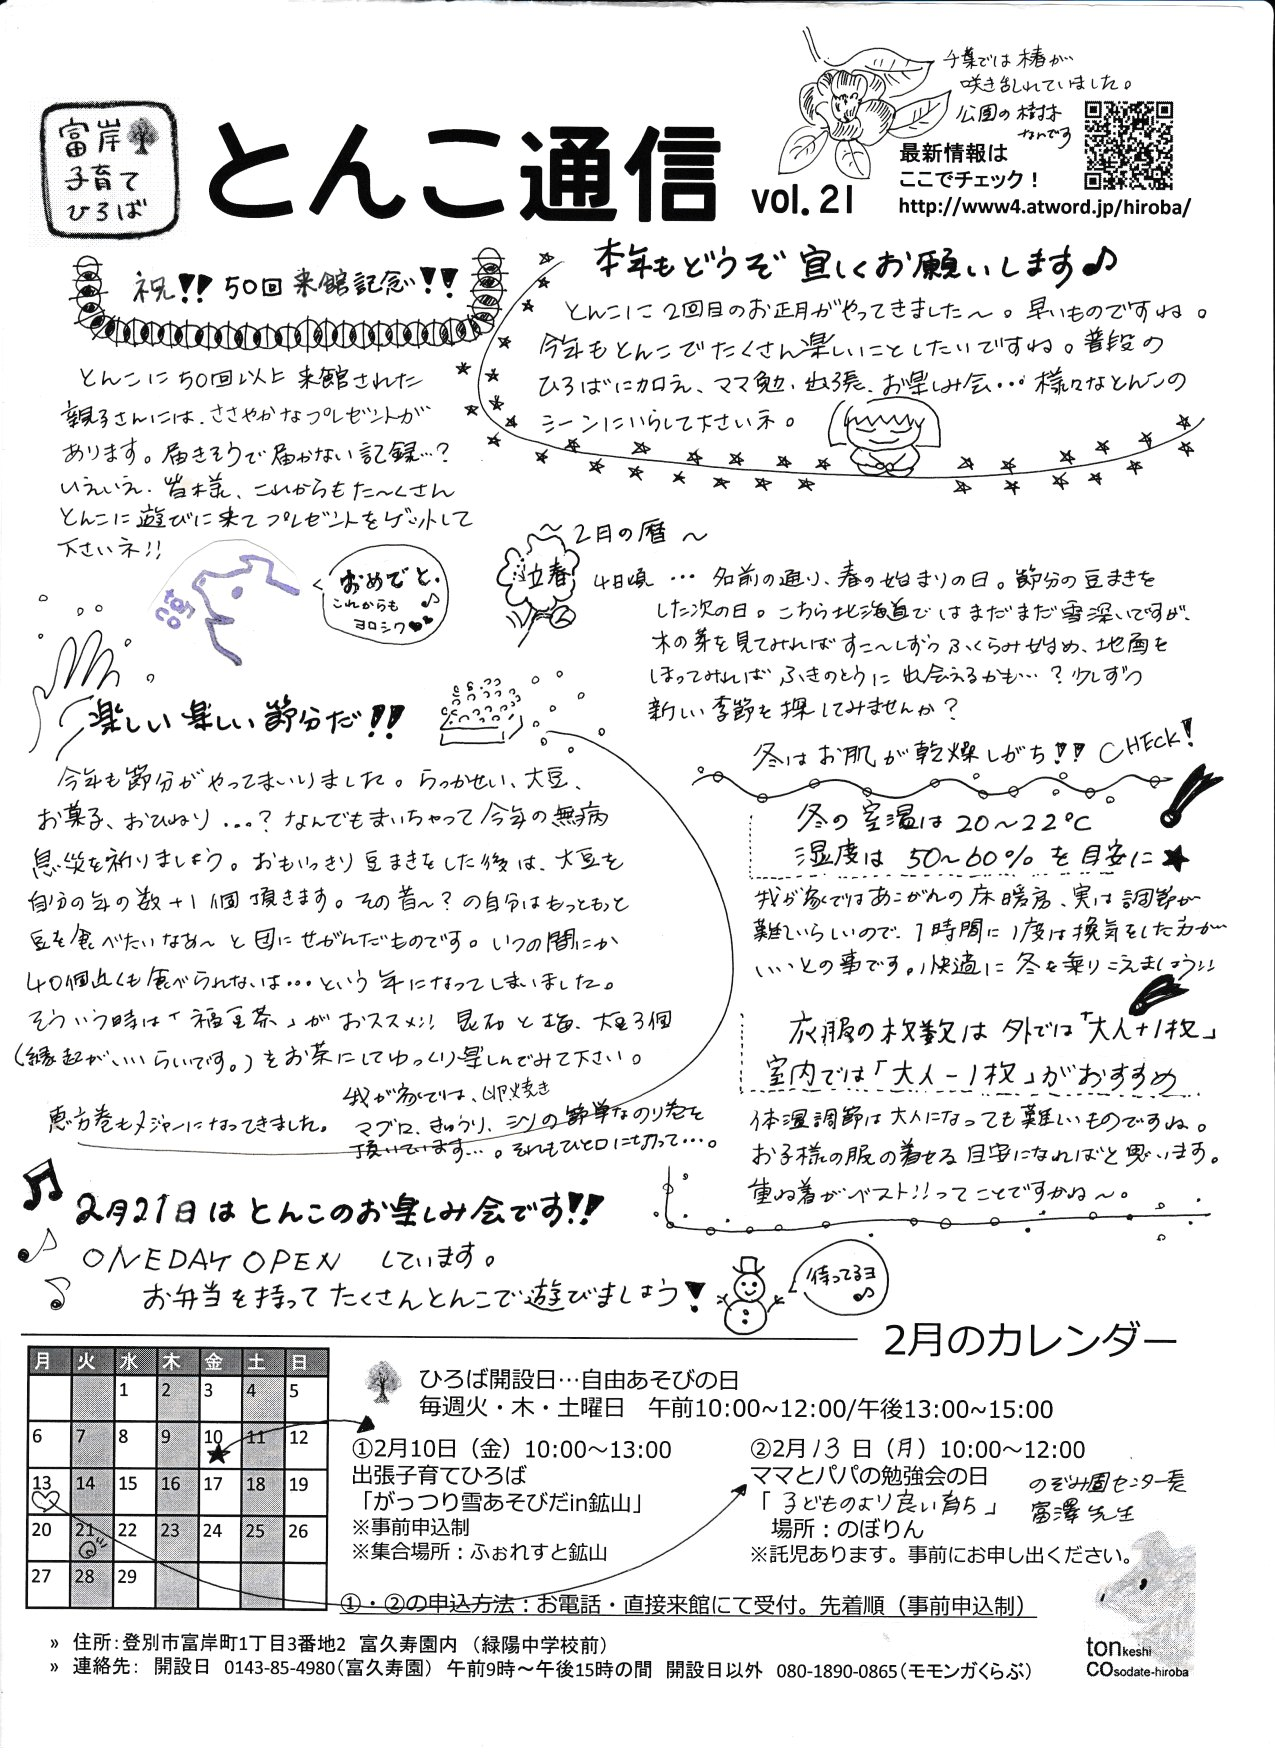 千葉では椿が
咲き乱れていました。
公園の樹木
なんです
富岸
子育て
ひろば
とんこ通信
vol. 21
最新情報は
ここでチェック！
http://www4.atword.jp/hiroba/
祝!! 50回 来館記念!!
とんこに50回以上 来館された
親子さんには、ささやかなプレゼントが
あります。届きそうで届かない記録…？
いえいえ、皆様、これからもた〜くさん
とんこに遊びに来てプレゼントをゲットして
下さいネ!!
おめでと、
これからも
ヨロシク
本年もどうぞ 宜しくお願いします♪
とんこに2回目のお正月がやってきました〜。早いものですね。
今年もとんこでたくさん楽しいことしたいですね。普段の
ひろばに加え、ママ勉、出張、お楽しみ会… 様々なとんこの
シーンにいらして下さいネ。
〜2月の暦〜
立春
4日頃 … 名前の通り、春の始まりの日。節分の豆まきを
した次の日。こちら北海道ではまだまだ雪深いですが、
木の芽を見てみればすこ〜しずつふくらみ始め、地面を
ほってみれば ふきのとうに 出会えるかも…？少しずつ
新しい季節を探してみませんか？
楽しい楽しい節分だ!!
今年も節分がやってまいりました。らっかせい、大豆、
お菓子、おひねり…？なんでもまいちゃって今年の無病
息災を祈りましょう。おもいっきり豆まきをした後は、大豆を
自分の年の数+1個頂きます。その昔〜？の自分はもっともっと
豆を食べたいなあ〜と 母にせがんだものです。いつの間にか
40個近くも食べられないは…という年になってしまいました。
そういう時は「福豆茶」がおススメ!! 昆布と梅、大豆3個
(縁起がいいらしいです。)をお茶にしてゆっくり楽しんでみて下さい。
恵方巻もメジャーになってきました。
我が家では、卵焼き
マグロ、きゅうり、シソの簡単なのり巻を
頂いています…。それもひと口に切って…。
冬はお肌が乾燥しがち!! CHECK!
冬の室温は20〜22℃
湿度は 50〜60%を目安に★
我が家ではあこがれの床暖房、実は調節が
難しいらしいので、1時間に1度は換気をした方が
いいとの事です。快適に冬を乗りこえましょう!!
衣服の枚数は 外では「大人+1枚」
室内では「大人−1枚」がおすすめ
体温調節は大人になっても難しいものですね。
お子様の服の着せる目安になればと思います。
重ね着がベスト!!ってことですかね〜。
2月21日はとんこのお楽しみ会です!!
ONEDAY OPEN しています。
お弁当を持ってたくさんとんこで遊びましょう!
待ってるヨ
2月のカレンダー
月 火 水 木 金 土 日
1 2 3 4 5
6 7 8 9 10 11 12
13 14 15 16 17 18 19
20 21 22 23 24 25 26
27 28 29
ひろば開設日…自由あそびの日
毎週火・木・土曜日 午前10:00~12:00/午後13:00~15:00
①2月10日（金）10:00～13:00
出張子育てひろば
「がっつり雪あそびだin鉱山」
※事前申込制
※集合場所：ふぉれすと鉱山
②2月13日（月）10:00～12:00
ママとパパの勉強会の日
「子どものより良い育ち」
のぞみ園センター長
富澤先生
場所：のぼりん
※託児あります。事前にお申し出ください。
①・②の申込方法：お電話・直接来館にて受付。先着順（事前申込制）
» 住所：登別市富岸町1丁目3番地2 富久寿園内 （緑陽中学校前）
» 連絡先： 開設日 0143-85-4980（富久寿園） 午前9時～午後15時の間 開設日以外 080-1890-0865（モモンガくらぶ）
tonkeshi
COsodate-hiroba